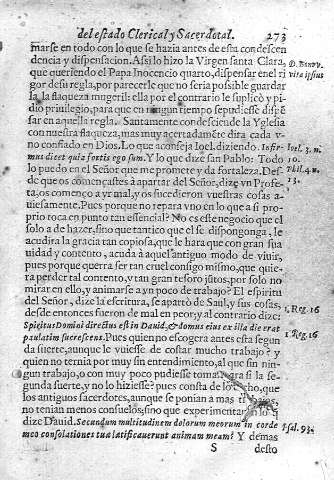 del estado Clerical y Sacerdotal. 273
marse en todo con lo que se hazia antes de esta condescen
dencia y dispensacion. Assi lo hizo la Virgen santa Clara,
que queriendo el Papa Inocencio quarto, dispensar en el ri
gor de su regla, por parecerle que no seria posible guardar
la, la flaqueza mugeril: ella por el contrario le suplicò y pi
dio privilegio, para que en ningun tiempo se pudiesse dispē
sar en aquella regla. Santamente condesciende la Yglesia
con nuestra flaqueza, mas muy acertadamēte dira cada v
no confiado en Dios. Lo que aconseja Ioel. diziendo. Infir-
mus dicet quia fortis ego sum. Y lo que dize san Pablo: Todo
lo puedo en el Señor que me promete y da fortaleza. Des
de que començastes à apartar del Señor, dize vn Profe-
ta, os començo a yr mal, y os sucedieron vuestras cosas a-
uiesamente. Pues porque no repara vno en lo que a si pro-
prio toca en punto tan essencial? No es este negocio que el
solo a de hazer, sino que tantico que el se dispongonga, le
acudira la gracia tan copiosa, que le hara que con gran sua
uidad y contento, acuda à aquel antiguo modo de viuir,
pues porque querra ser tan cruel consigo mismo, que quie-
ra perder tal contento, y tan gran tesoro jūtos, por solo no
mirar en ello, y animarse a yn poco de trabajo? El espiritu
del Señor, dize la escritura, se apartò de Saul, y sus cosas,
desde entonces fueron de mal en peor; y al contrario dize:
Spiritus Domini directus est in Dauid, & domus eius ex illa die erat
paulatim sucrescens. Pues quien no escogera antes esta segun
da suerte, aunque le viuiesse de costar mucho trabajo? y
quien no ternia por muy sin entendimiento, al que sin nin
gun trabajo, o con muy poco pudiesse tomar para si la se-
gunda suerte, y no lo hiziesse? pues consta de lo dicho, que
los antiguos sacerdotes, aunque se ponian à mas trabajos,
no tenian menos consuelos, sino que experimentarian lo q̄
dize Dauid. Secundum multitudinem dolorum meorum in corde
meo consolationes tuæ latificauerunt animam meam? Y demas
S desto
D. Bonv.
vita ipsius
Ioel. 3. n.
10.
Phil. 4. n
13.
1. Reg. 16
1. Reg. 16
Psal. 93.